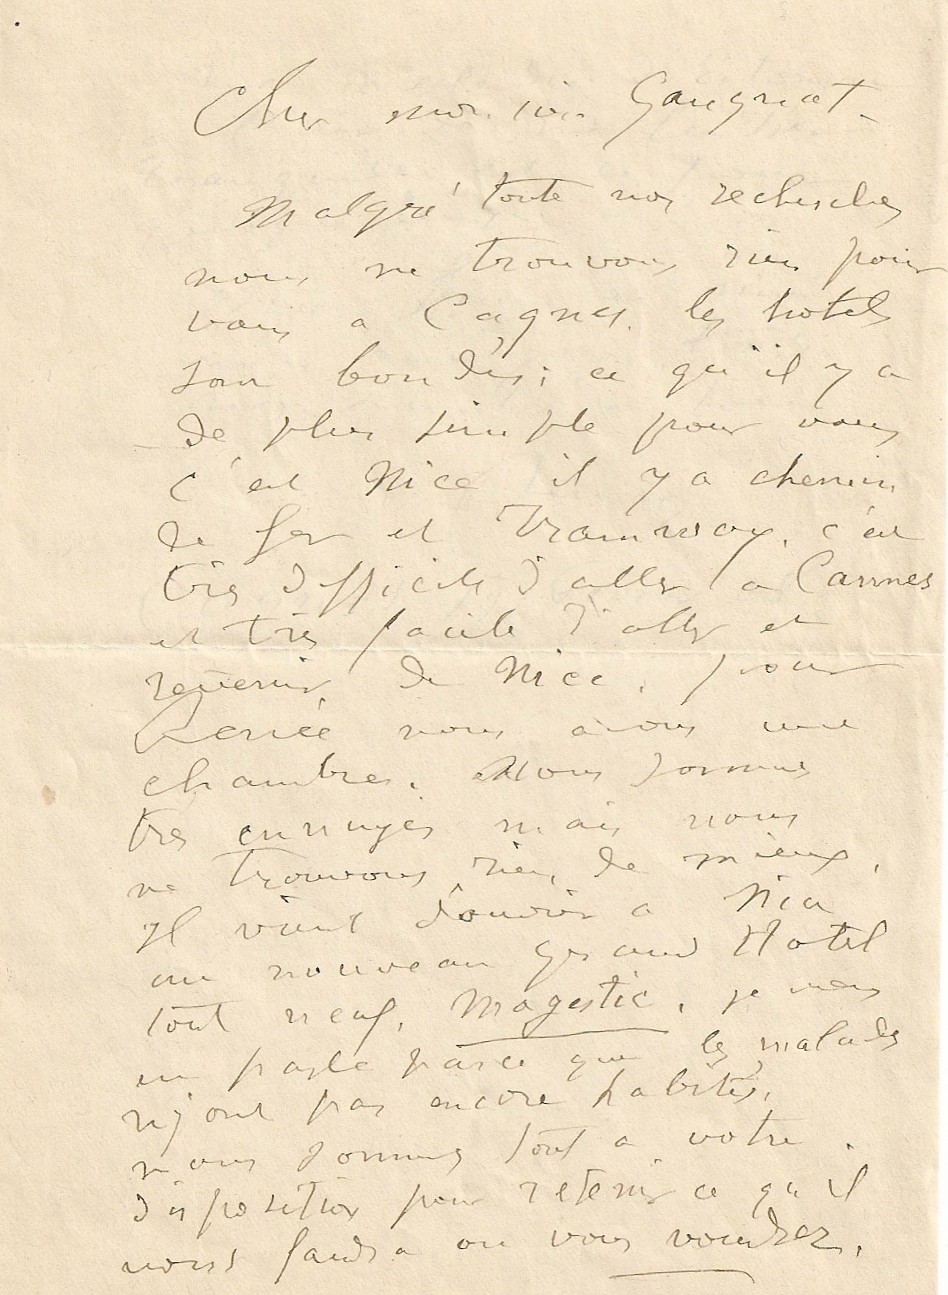 Cher monsieur Gangnat
Malgré toute nos recherches
nous ne trouvons rien pour
vous a Cagnes. les hotels
son bondés ; ce qu'il y a
de plus simple pour vous
c'est Nice il y a chemin
de fer et Tramway. c'est
très difficile d'aller a Cannes
et très facile d'aller et
revenir de Nice. pour
Renée nous avons une
chambre. Nous sommes
très ennuyés mais nous
ne trouvons rien de mieux.
Il vient d'ouvrir a Nice
un nouveau grand Hotel
tout neuf, Magestic. je vous
en parle parce que les malades
n'y ont pas encore habités.
nous sommes tout a votre
disposition pour retenir ce qu'il
vous faudra ou vous voudrez.